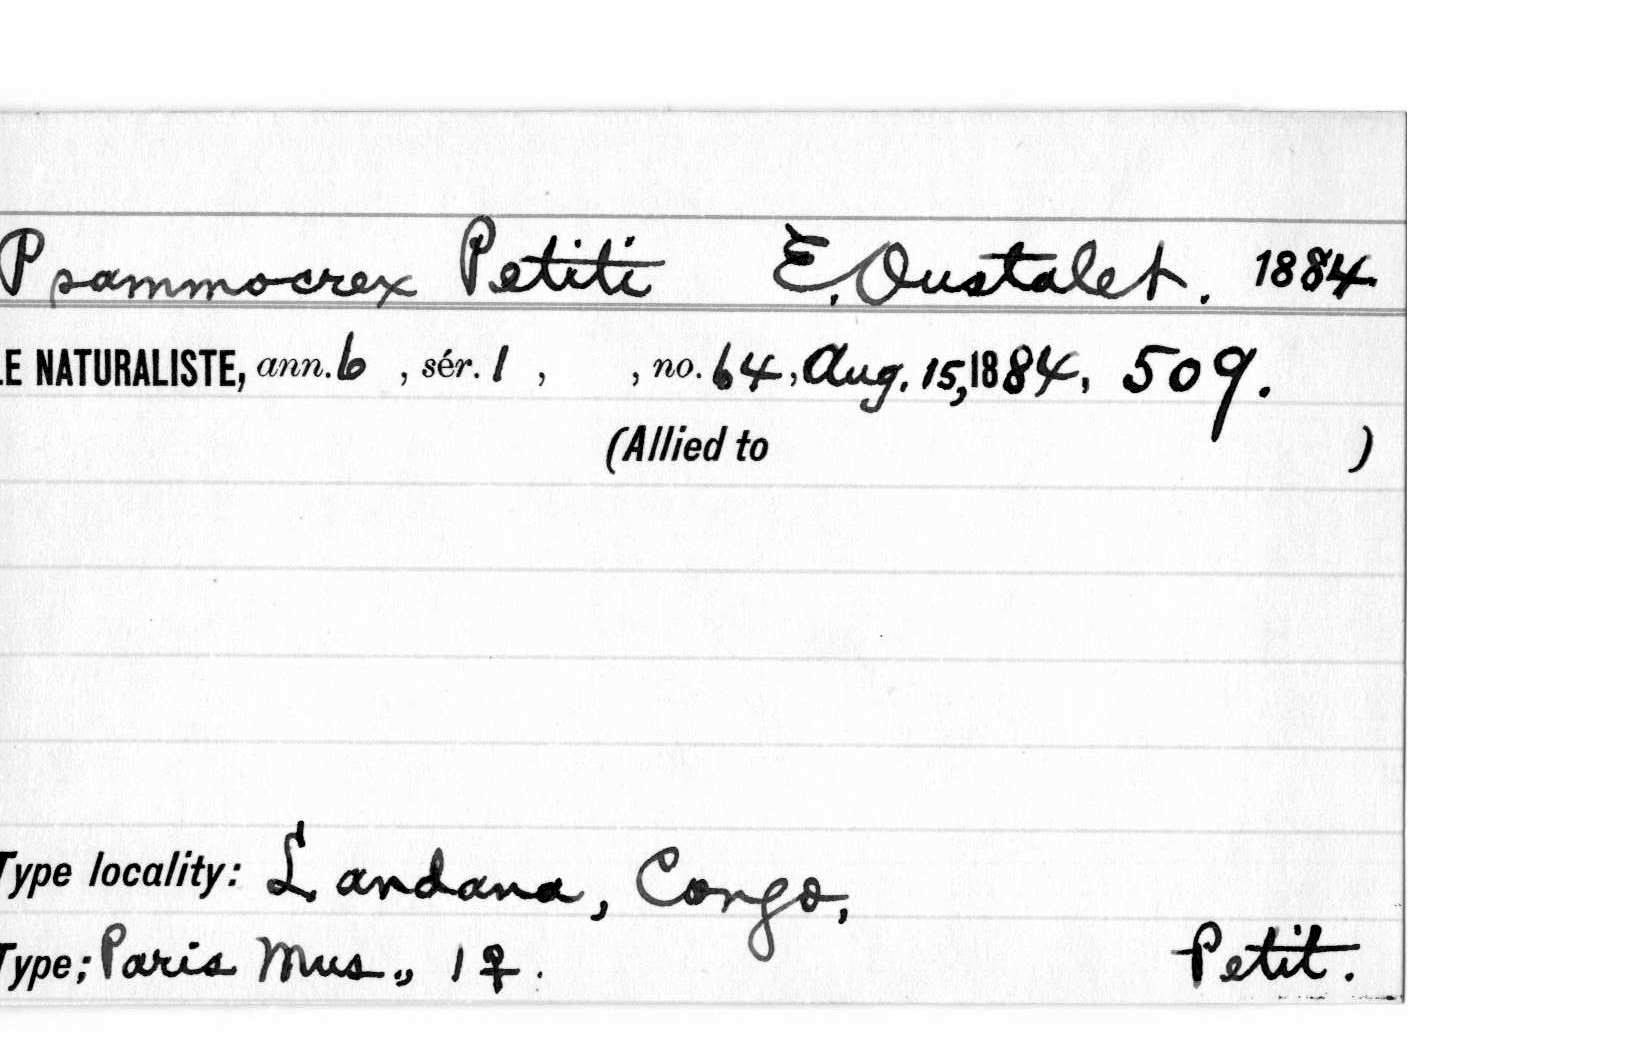 Psammocrex Petiti E. Oustalet. 1884.
LE NATURALISTE, ann. 6 , sér. 1 , , no. 64, Aug. 15, 1884, 509.
(Allied to )
Type locality: Landana, Congo,
Type; Paris Mus., 1 ♀. Petit.